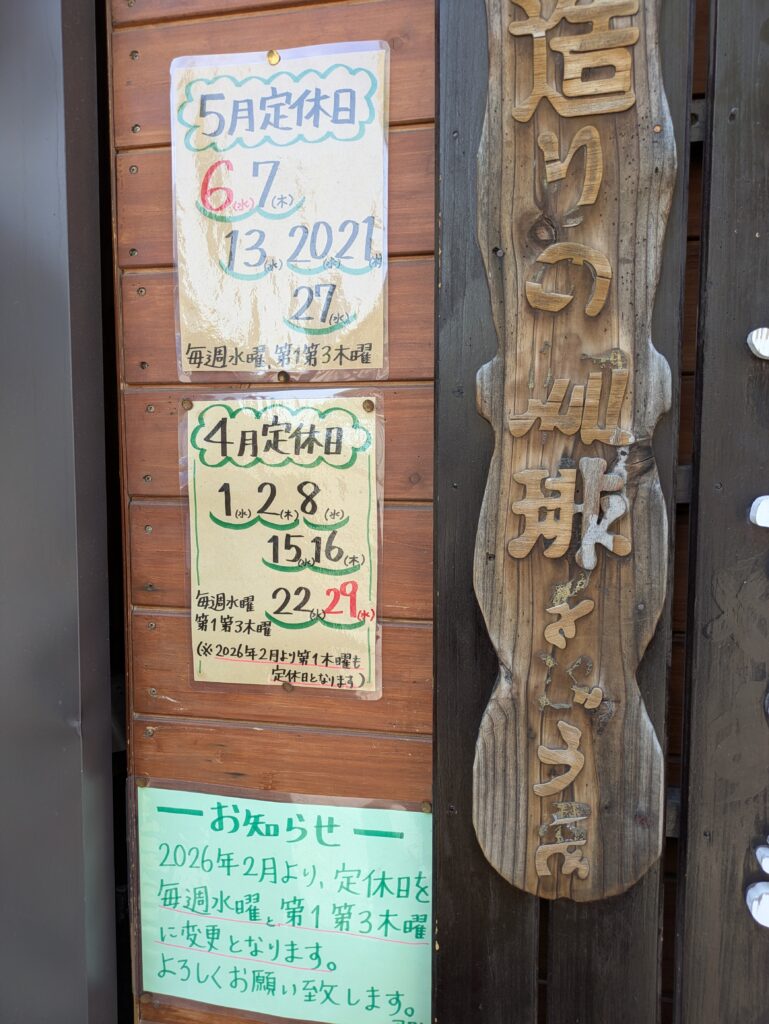 5月定休日
6(水) 7(木)
13(水) 20(水) 21(木)
27(水)
毎週水曜、第1第3木曜
4月定休日
1(水) 2(木) 8(水)
15(水) 16(木)
毎週水曜 22(水) 29(水)
第1第3木曜
(※2026年2月より第1木曜も
定休日となります)
ーお知らせー
2026年2月より、定休日を
毎週水曜と第1第3木曜
に変更となります。
よろしくお願い致します。
造りの珈琲とじうき